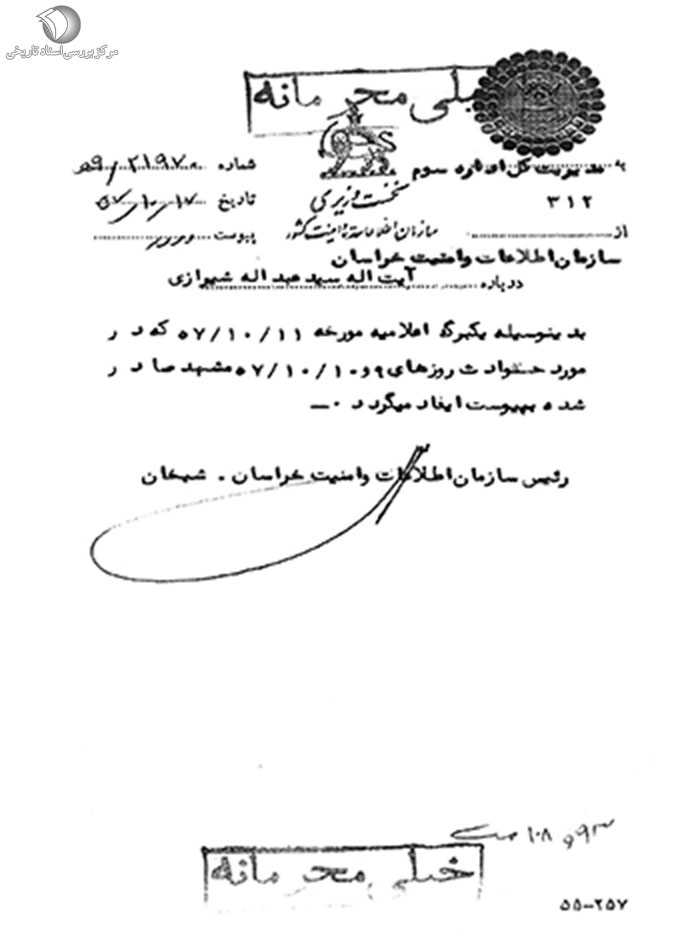 مرکز بررسی اسناد تاریخی
خیلی محرمانه
به مدیریت کل اداره سوم
۳۱۲
از
سازمان اطلاعات و امنیت خراسان
نخست وزیری
سازمان اطلاعات و امنیت کشور
شماره
تاریخ ۵۷/۱۰/۱۷
پیوست
درباره آیت اله سید عبد اله شیرازی
بدینوسیله یکبرگ اعلامیه مورخه ۵۷/۱۰/۱۱ که در
مورد حوادث روزهای ۹و۵۷/۱۰/۱۰ مشهد صادر
شده بپیوست ایفاد میگردد ۰ــ
رئیس سازمان اطلاعات و امنیت خراسان . شیخان
خیلی محرمانه
۵۵-۲۵۷